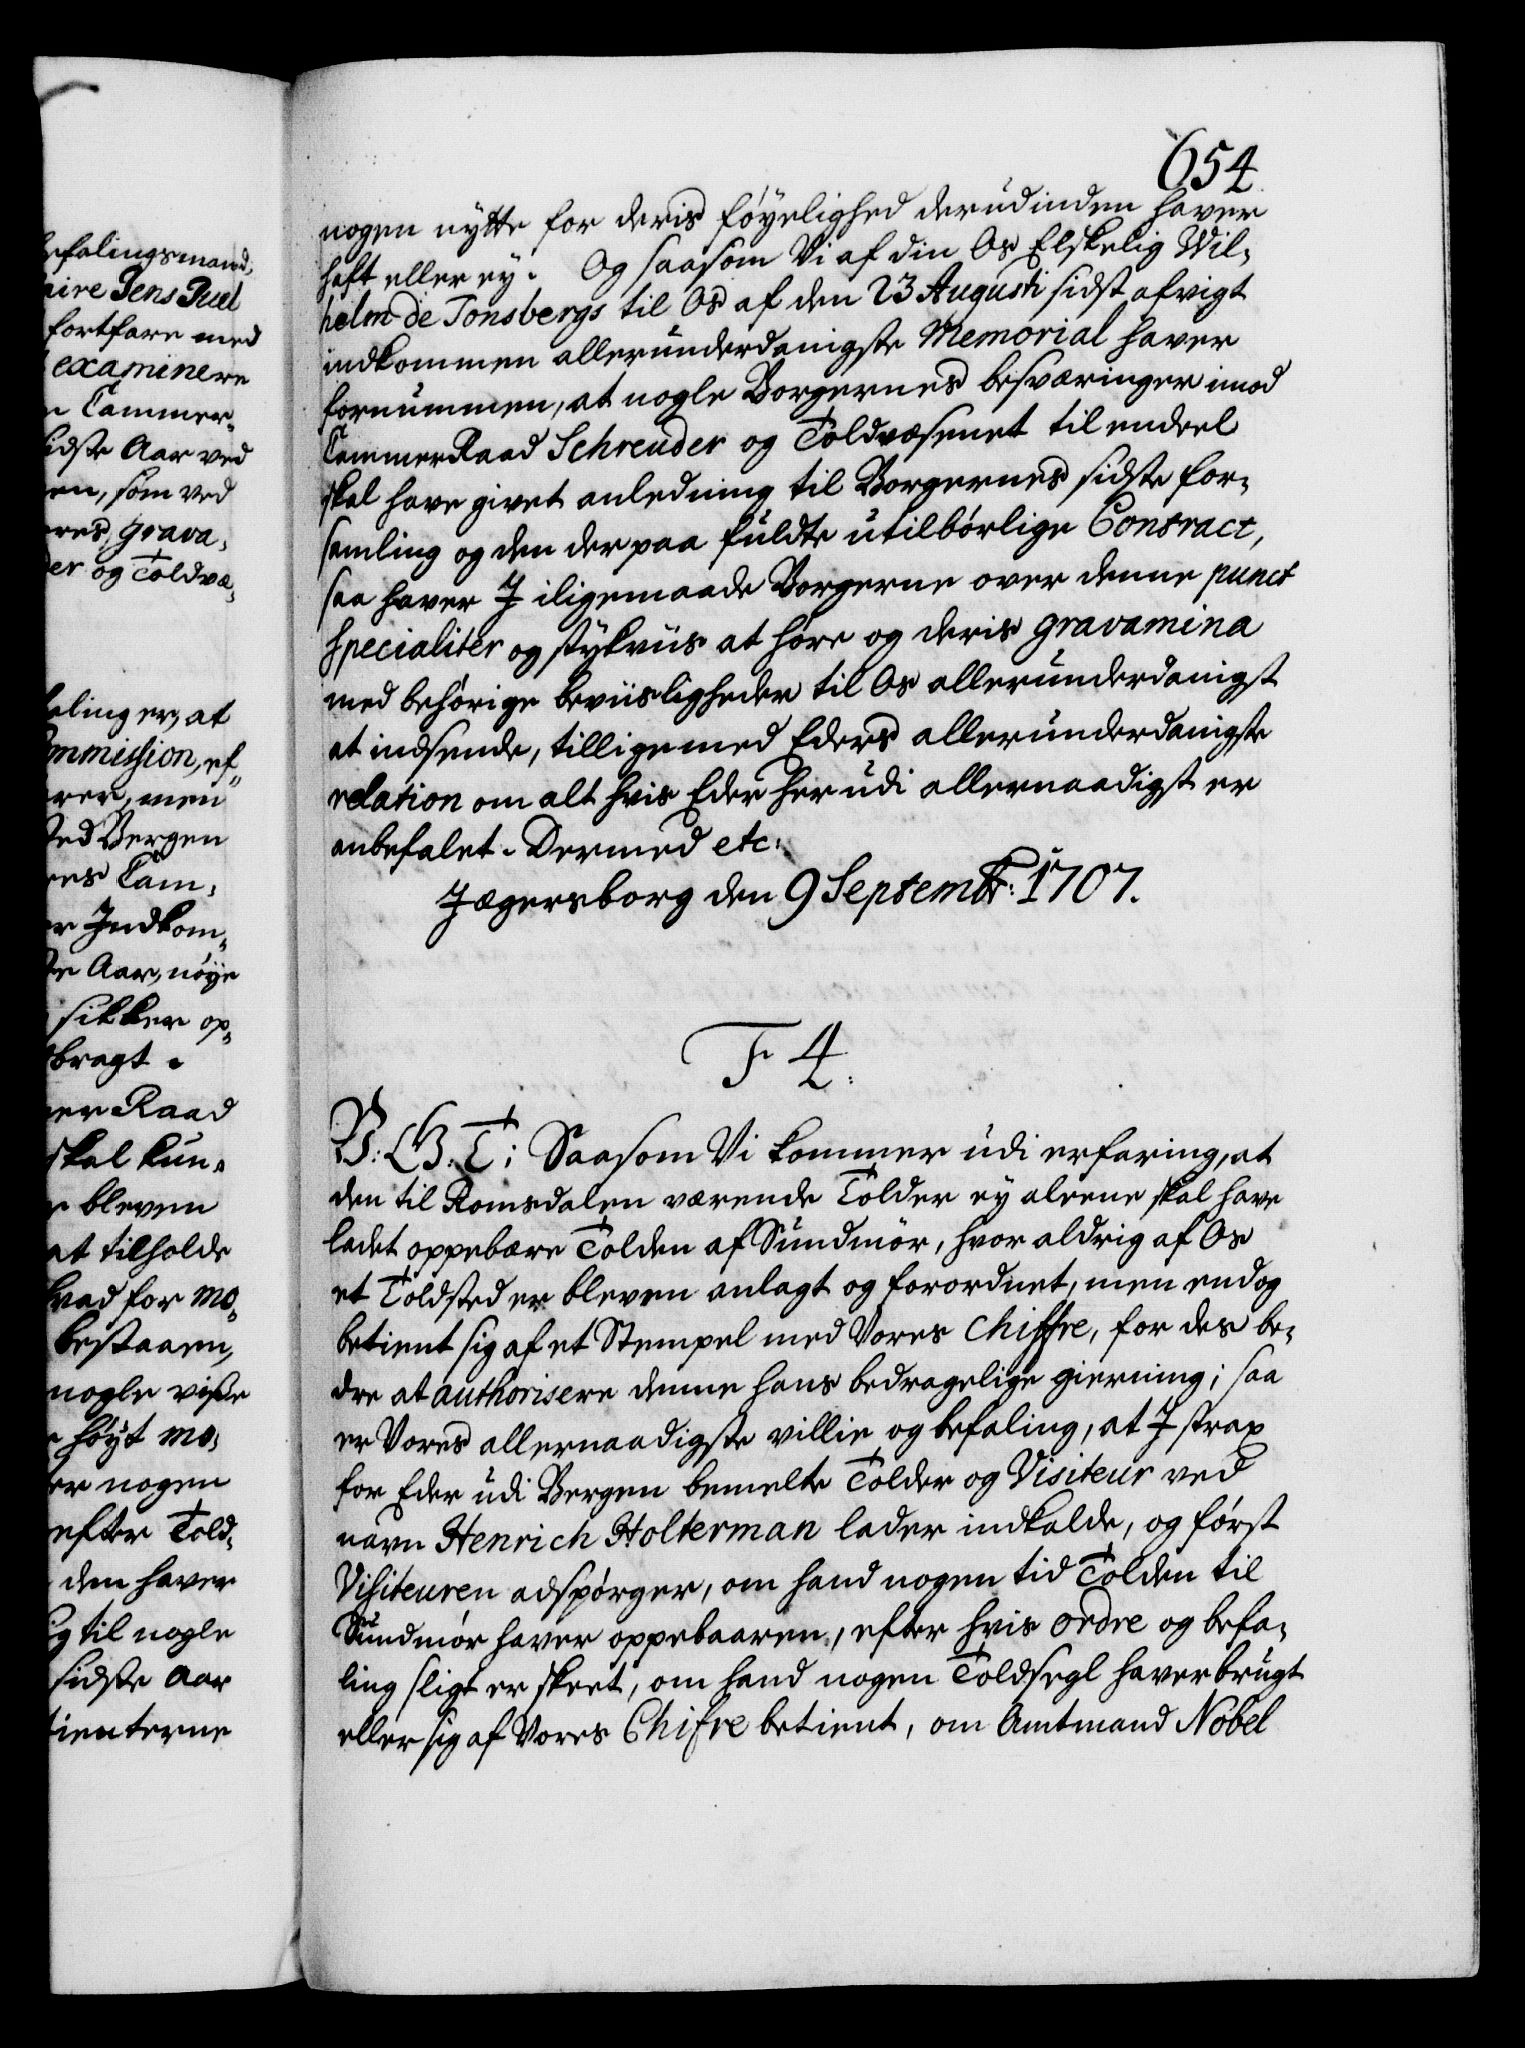 654.
nogen nytte for deris føyelighed derudinden haver
haft eller ey. Og saasom Vi af din Os Elskelig Wil-
helm de Tonsbergs til Os af den 23 Augusti sidst afvigt
indkommen allerunderdanigste Memorial haver
fornummen, at nogle Borgernes besværinger imod
CammerRaad Schreuder og Toldvæsenet til endeel
skal have givet anledning til Borgernes sidste for-
samling og den derpaa fuldte utilbørlige Contract,
saa haver J iligemaade Borgerne over denne punct
specialiter og stykviis at høre og deris gravamina
med behørige beviisligheder til Os allerunderdanigst
at indsende, tilligemed Eders allerunderdanigste
relation om alt hvis Eder herudi allernaadigst er
anbefalet. Dermed etc:
Jægersborg den 9 Septembr: 1707.
F 4.
V: G: T: Saasom Vi kommer udi erfaring, at
den til Romsdalen værende Tolder ey aleene skal have
ladet oppebære Tolden af Sundmør, hvor aldrig af Os
et Toldsted er bleven anlagt og forordnet, men endog
betient sig af et Stempel med Vores Chiffre, for des be-
dre at authorisere denne hans bedragelige gierning; saa
er Vores allernaadigste villie og befaling, at J strax
for Eder udi Bergen bemelte Tolder og Visiteur ved
navn Henrich Holterman lader indkalde, og først
Visiteuren adspørger, om hand nogen tid Tolden til
Sundmør haver oppebaaren, efter hvis ordre og befa-
ling sligt er skeet, om hand nogen Toldsegl haver brugt
eller sig af Vores Chifre betient, om Amtmand Nobel
efalingsmand,
aire Jens Juel
fortfare med
examinere
Cammer-
idste Aar ved
en, som ved
grava-
er og Toldvæ-
alinger, at
mmission, ef-
rer, men
sted Bergen
Cam-
er Indkom-
te Aar, nøye
sikker op-
bragt.
er Raad
skal kun-
bleven
at tilholde
hvad for mo-
bestaaen,
nogle visse
høyt mo-
er nogen
efter Told-
den haver
ig til nogle
sidste Aar
tienterne